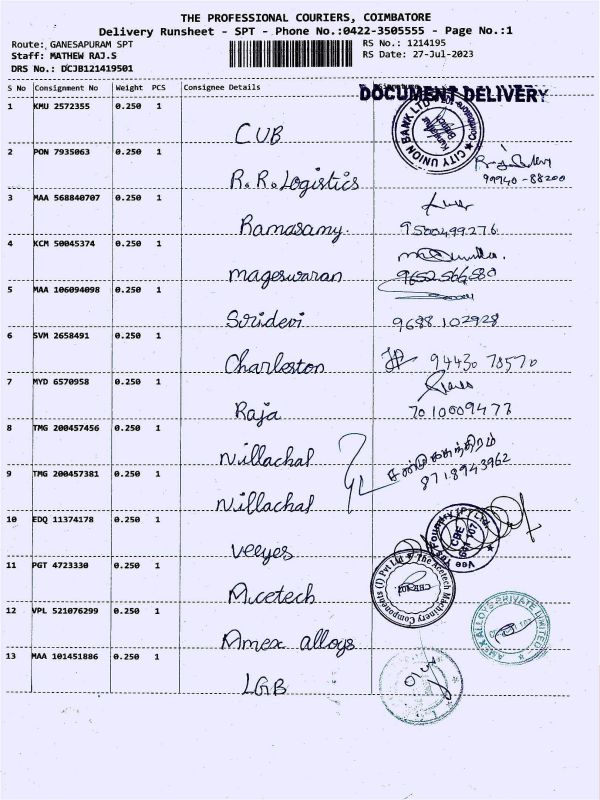 THE PROFESSIONAL COURIERS, COIMBATORE
Delivery Runsheet - SPT - Phone No.:0422-3505555 - Page No.:1
Route: GANESAPURAM SPT
Staff: MATHEW RAJ.S
DRS No.: DCJB121419501
RS No.: 1214195
RS Date: 27-Jul-2023
S No Consignment No Weight PCS Consignee Details
DOCUMENT DELIVERY
1 KMU 2572355 0.250 1 CUB
CITY UNION BANK LTD
2 PON 7935063 0.250 1 R.R. Logistics
99940-88200
3 MAA 568840707 0.250 1 Ramasamy.
9500499276
4 KCM 50045374 0.250 1 Mageswaran
9652566580
5 MAA 106094098 0.250 1 Sridevi
9688 102928
6 SVM 2658491 0.250 1 Charleston
94430 78570
7 MYD 6570958 0.250 1 Raja
7010009477
8 TMG 200457456 0.250 1 Nillachal
8718943962
9 TMG 200457381 0.250 1 Nillachal
10 EDQ 11374178 0.250 1 Veeyes
Vee Yes Foundry (P) Ltd.
CBE
641 107
11 PGT 4723330 0.250 1 Acetech
The Acetech Machinery Components (I) Pvt Ltd
12 VPL 521076299 0.250 1 Amex alloys
AMEX ALLOYS PRIVATE LIMITED
13 MAA 101451886 0.250 1 LGB